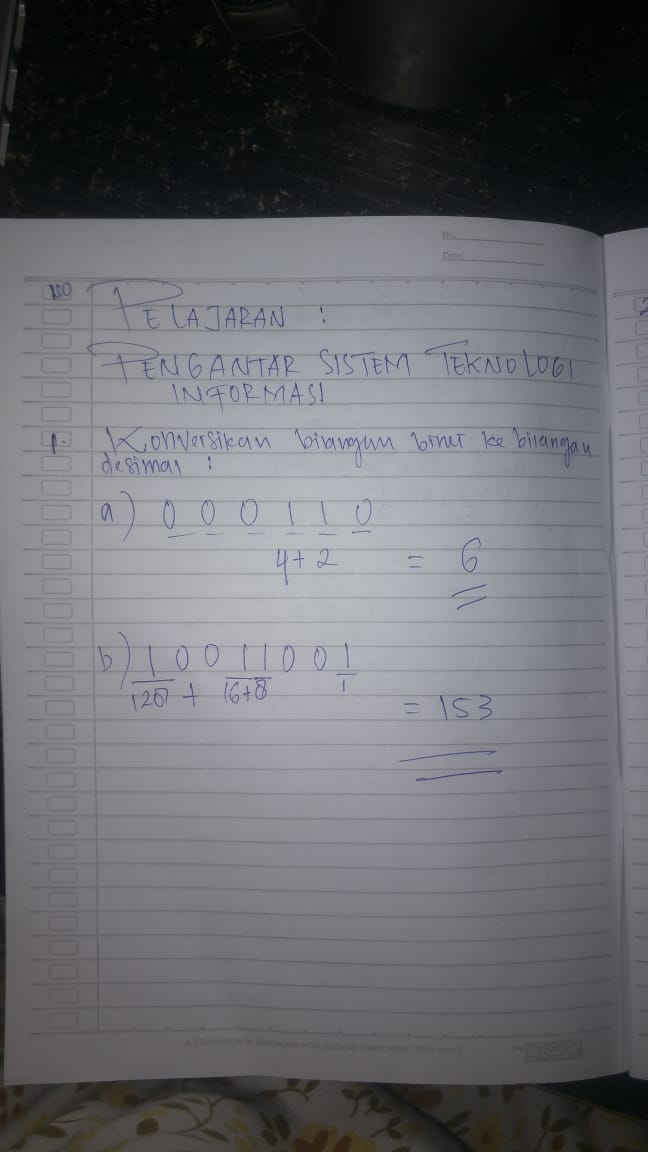 No.
Date
NO
PELAJARAN :
PENGANTAR SISTEM TEKNOLOGI
INFORMASI
1. Konversikan bilangan biner ke bilangan
desimal :
a) 0 0 0 1 1 0
4+ 2 = 6
b) 1 0 0 1 1 0 0 1
128 + 16+8 1
= 153
A Champion is someone who gets up even when they can't
2